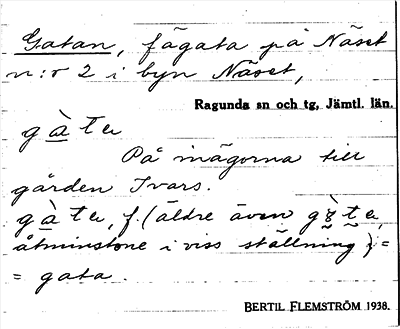 Gatan, fägata på Näset
n:r 2 i byn Näset,
Ragunda sn och tg, Jämtl. län.
gàta
På inägorna till
gården Ivars.
gàta, f. (äldre även
åtminstone i viss ställning) =
= gata.
BERTIL FLEMSTRÖM 1938.